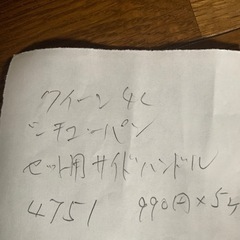 クイーン 4L
シチューパン
セット用サイドハンドル
4751 990円×5ケ